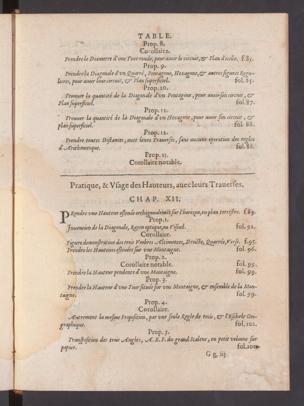 TABLE.
Prop. 8.
Corollaire.
Prendre le Diametre d'une Tour ronde, pour avoir le circuit, & Plan d'icelle. f.85.
Prop. 9.
Prendre la Diagonale d'un Quarré, Pentagone, Hexagone, & autres figures Regu-
lieres, pour avoir leur circuit, & Plan superficiel. fol. 85.
Prop. 10.
Trouver la quantité de la Diagonale d'un Pentagone, pour avoir son circuit, &
Plan superficiel. fol. 87.
Prop. 11.
Trouver la quantité de la Diagonale d'un Hexagone, pour avoir son circuit, &
plan superficiel. fol. 88.
Prop. 12.
Prendre toutes Distantes, avec leurs Traverses, sans aucune operation des regles
d'Arithmetique. fol. 88.
Prop. 13.
Corollaire notable.
Pratique, & Usage des Hauteurs, avec leurs Traverses.
CHAP. XII.
Prendre une Hauteur estenduë orthogonalement sur l'horizon, en plan terrestre. f.89.
Prop. 1.
Invention de la Diagonale, Rayon optique, ou Visuel. fol. 92.
Corollaire.
Figure demonstration des trois Umbres Altimetres, Droicte, Quarrée, Verse. f.95.
Prendre les Hauteurs estenduës sur une Montaigne. fol. 96.
Prop. 2.
Corollaire notable. fol. 95.
Prendre la Hauteur pendente d'une Montaigne. fol. 99.
Prop. 3.
Prendre la Hauteur d'une Tour située sur une Montaigne, & ensemble de la Mon-
taigne. fol. 99.
Prop. 4.
Corollaire.
Autrement la mesme Proposition, par une seule Regle de trois, & l'Eschele Geo-
graphique. fol. 101.
Prop. 5.
Transposition des trois Angles, A. E. F. du grand Scalene, en petit volume sur
papier.
G g iij